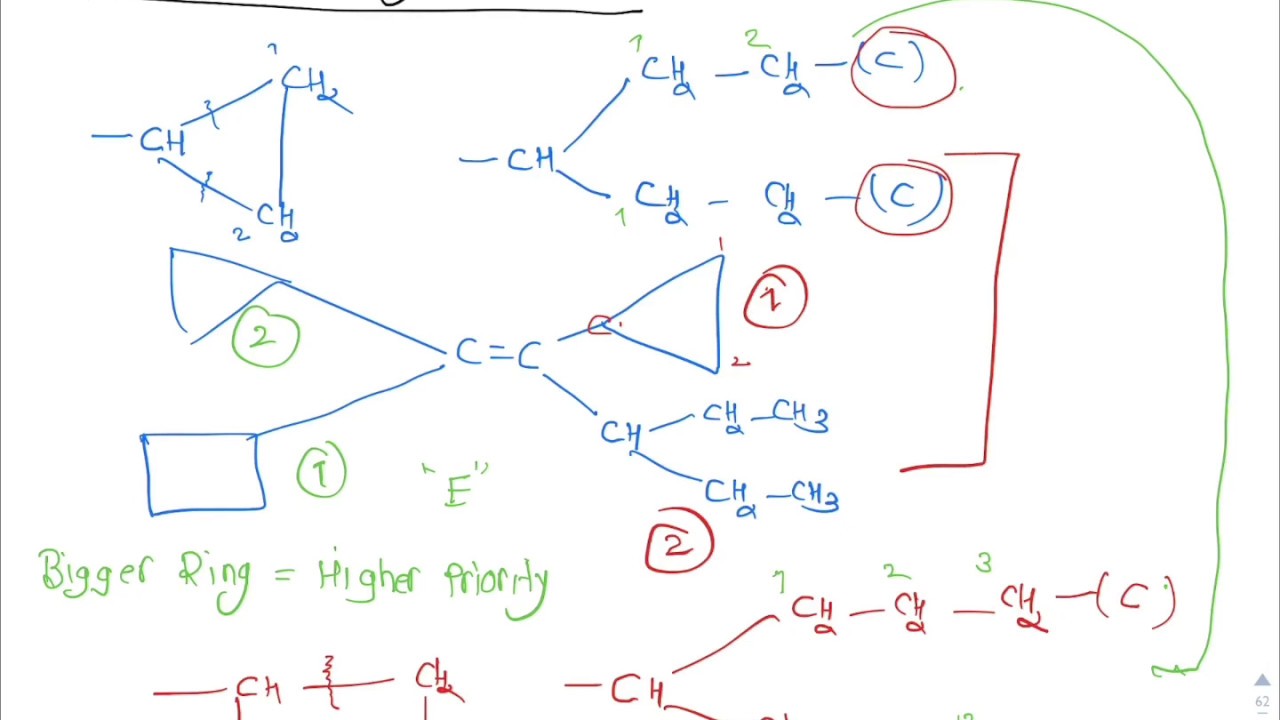 1
CH2
CH
CH2
2
1 2
CH2 – CH2 – (C)
– CH
CH2 – CH2 – (C)
1
1
2
C = C
C
1
2
CH
CH2 – CH3
CH2 – CH3
1
2
"E"
Bigger Ring = Higher Priority
1 2 3
CH2 – CH2 – CH2 – (C)
CH
CH2
– CH
62